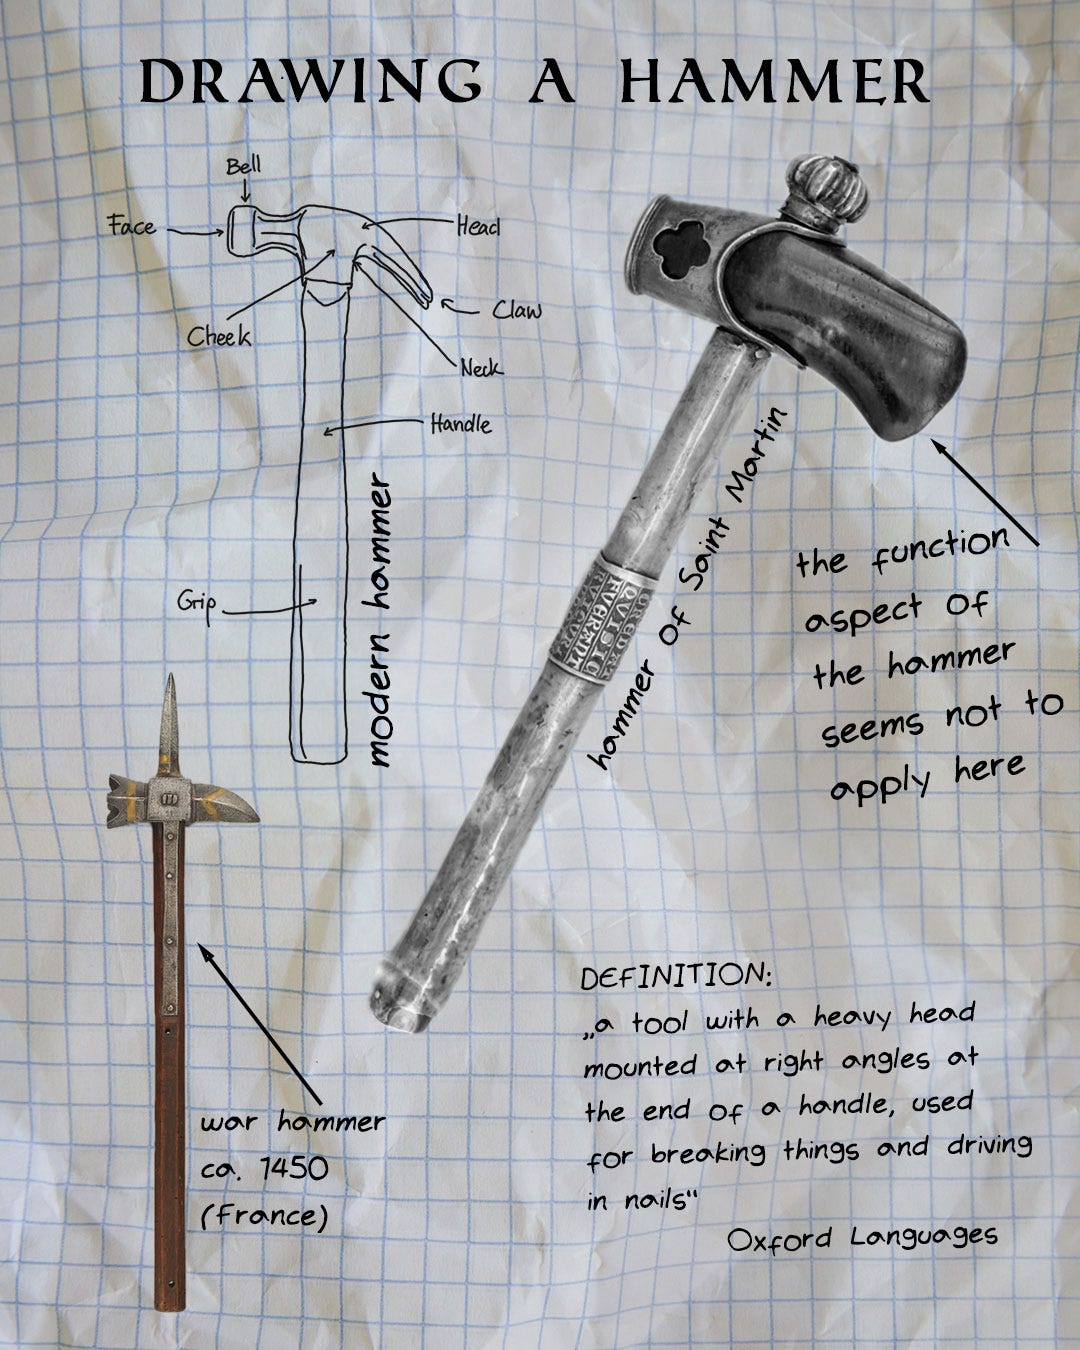 DRAWING A HAMMER
Bell
Face
Head
Claw
Cheek
Neck
Handle
Grip
modern hammer
hammer of Saint Martin
the function
aspect of
the hammer
seems not to
apply here
war hammer
ca. 1450
(France)
DEFINITION:
„a tool with a heavy head
mounted at right angles at
the end of a handle, used
for breaking things and driving
in nails“
Oxford Languages